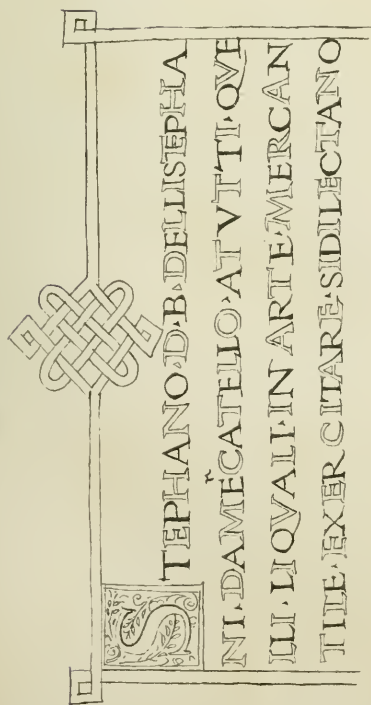 STEPHANO·D·B·DELLISTEPHA
NI·DAMERCATELLO·ATVTTI·QVE
ILI·LIQVALI·IN ARTE·MERCAN
TILE·EXERCITARE·SIDILECTANO